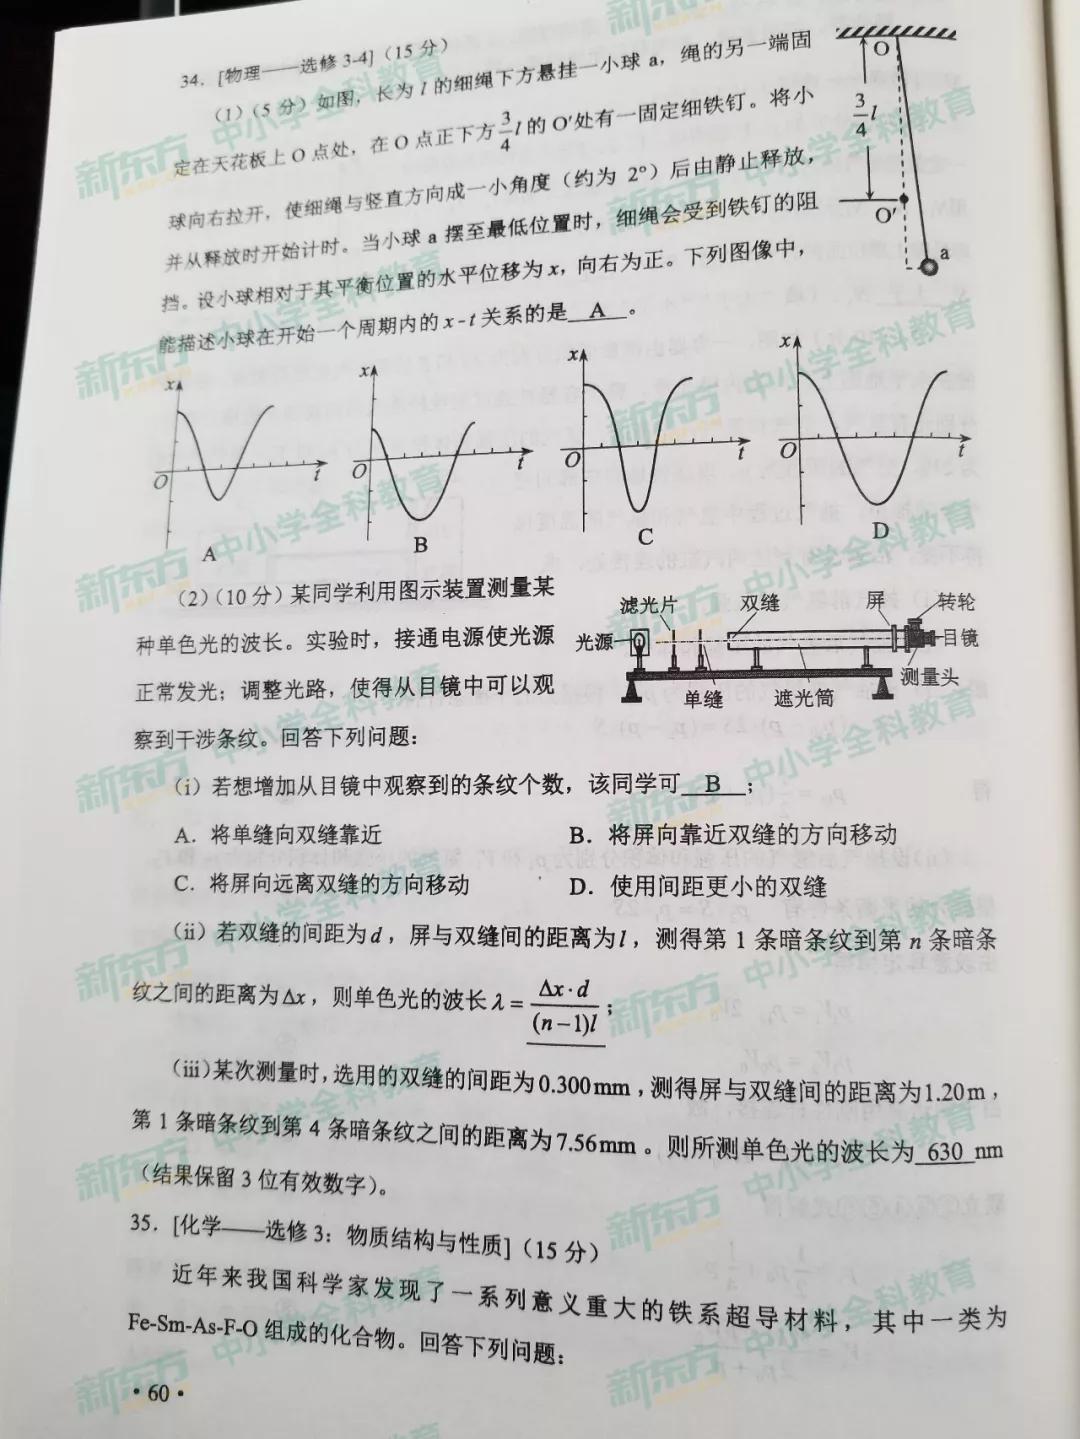 34. [物理——选修 3-4]（15 分）
(1)（5 分）如图，长为 l 的细绳下方悬挂一小球 a，绳的另一端固
定在天花板上 O 点处，在 O 点正下方 3/4 l 的 O′处有一固定细铁钉。将小
球向右拉开，使细绳与竖直方向成一小角度（约为 2°）后由静止释放，
并从释放时开始计时。当小球 a 摆至最低位置时，细绳会受到铁钉的阻
挡。设小球相对于其平衡位置的水平位移为 x，向右为正。下列图像中，
能描述小球在开始一个周期内的 x-t 关系的是 A 。
O
3/4 l
O′
a
x
O
t
A
x
O
t
B
x
O
t
C
x
O
t
D
(2)(10 分) 某同学利用图示装置测量某
种单色光的波长。实验时，接通电源使光源
正常发光；调整光路，使得从目镜中可以观
察到干涉条纹。回答下列问题：
滤光片 双缝 屏 转轮
光源 目镜
单缝 遮光筒 测量头
(i) 若想增加从目镜中观察到的条纹个数，该同学可 B ；
A. 将单缝向双缝靠近 B. 将屏向靠近双缝的方向移动
C. 将屏向远离双缝的方向移动 D. 使用间距更小的双缝
(ii) 若双缝的间距为 d，屏与双缝间的距离为 l，测得第 1 条暗条纹到第 n 条暗条
纹之间的距离为 Δx，则单色光的波长 λ = Δx·d/(n−1)l ；
(iii) 某次测量时，选用的双缝的间距为 0.300 mm，测得屏与双缝间的距离为 1.20 m，
第 1 条暗条纹到第 4 条暗条纹之间的距离为 7.56 mm。则所测单色光的波长为 630 nm
（结果保留 3 位有效数字）。
35. [化学——选修 3：物质结构与性质]（15 分）
近年来我国科学家发现了一系列意义重大的铁系超导材料，其中一类为
Fe-Sm-As-F-O 组成的化合物。回答下列问题：
·60·
新东方 中小学全科教育